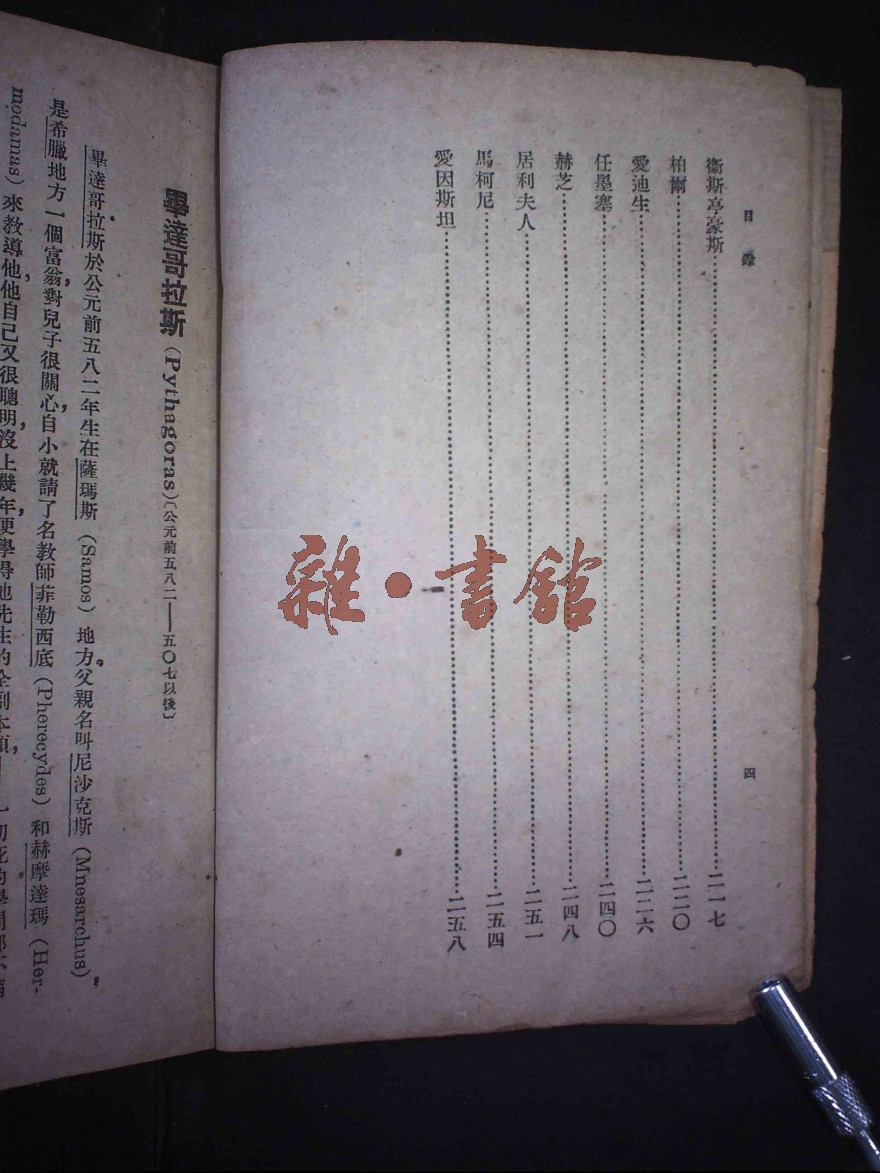 目錄
衞斯亭豪斯……二一七
柏爾……二二〇
愛迪生……二二六
任墨塞……二四〇
赫芝……二四八
居利夫人……二五一
馬柯尼……二五四
愛因斯坦……二五八
四
雜·書館
畢達哥拉斯(Pythagoras)〔公元前五八二——五〇七以後〕
畢達哥拉斯於公元前五八二年生在薩瑪斯(Samos)地方。父親名叫尼沙克斯(Mnesarchus),
是希臘地方一個富翁,對兒子很關心,自小就請了名教師菲勒西底(Pherecydes)和赫摩達瑪(Her-
modamas)來教導他,他自己又很聰明,沒上幾年,便學得他先生的全副本領,